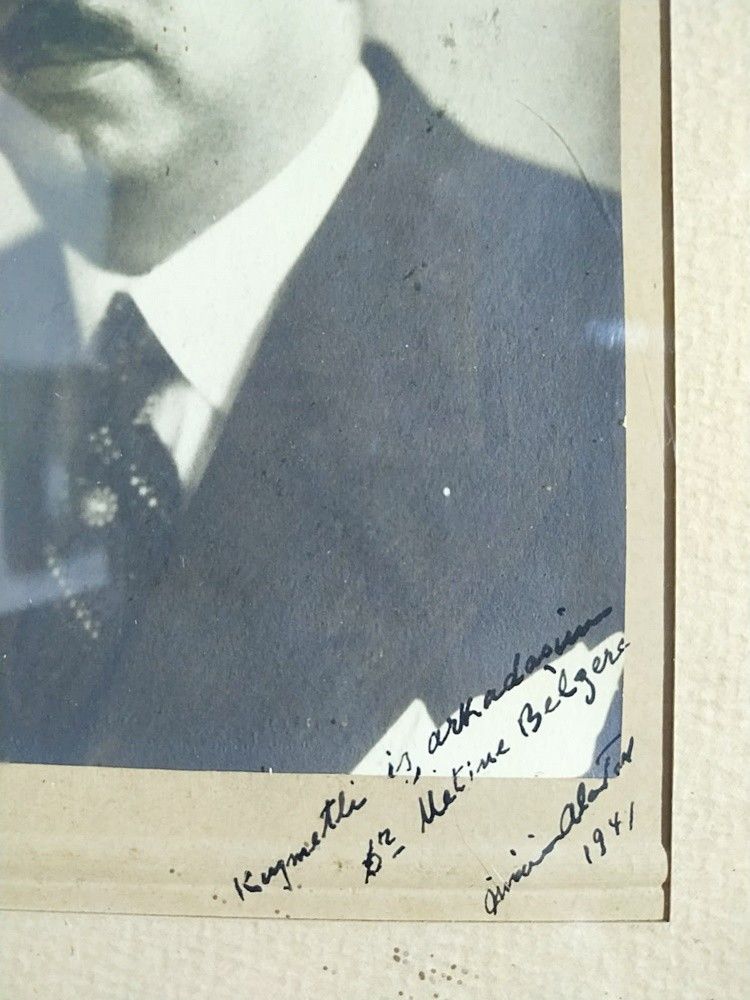 Kıymetli iş arkadaşım
Dr Metine Belger
1941